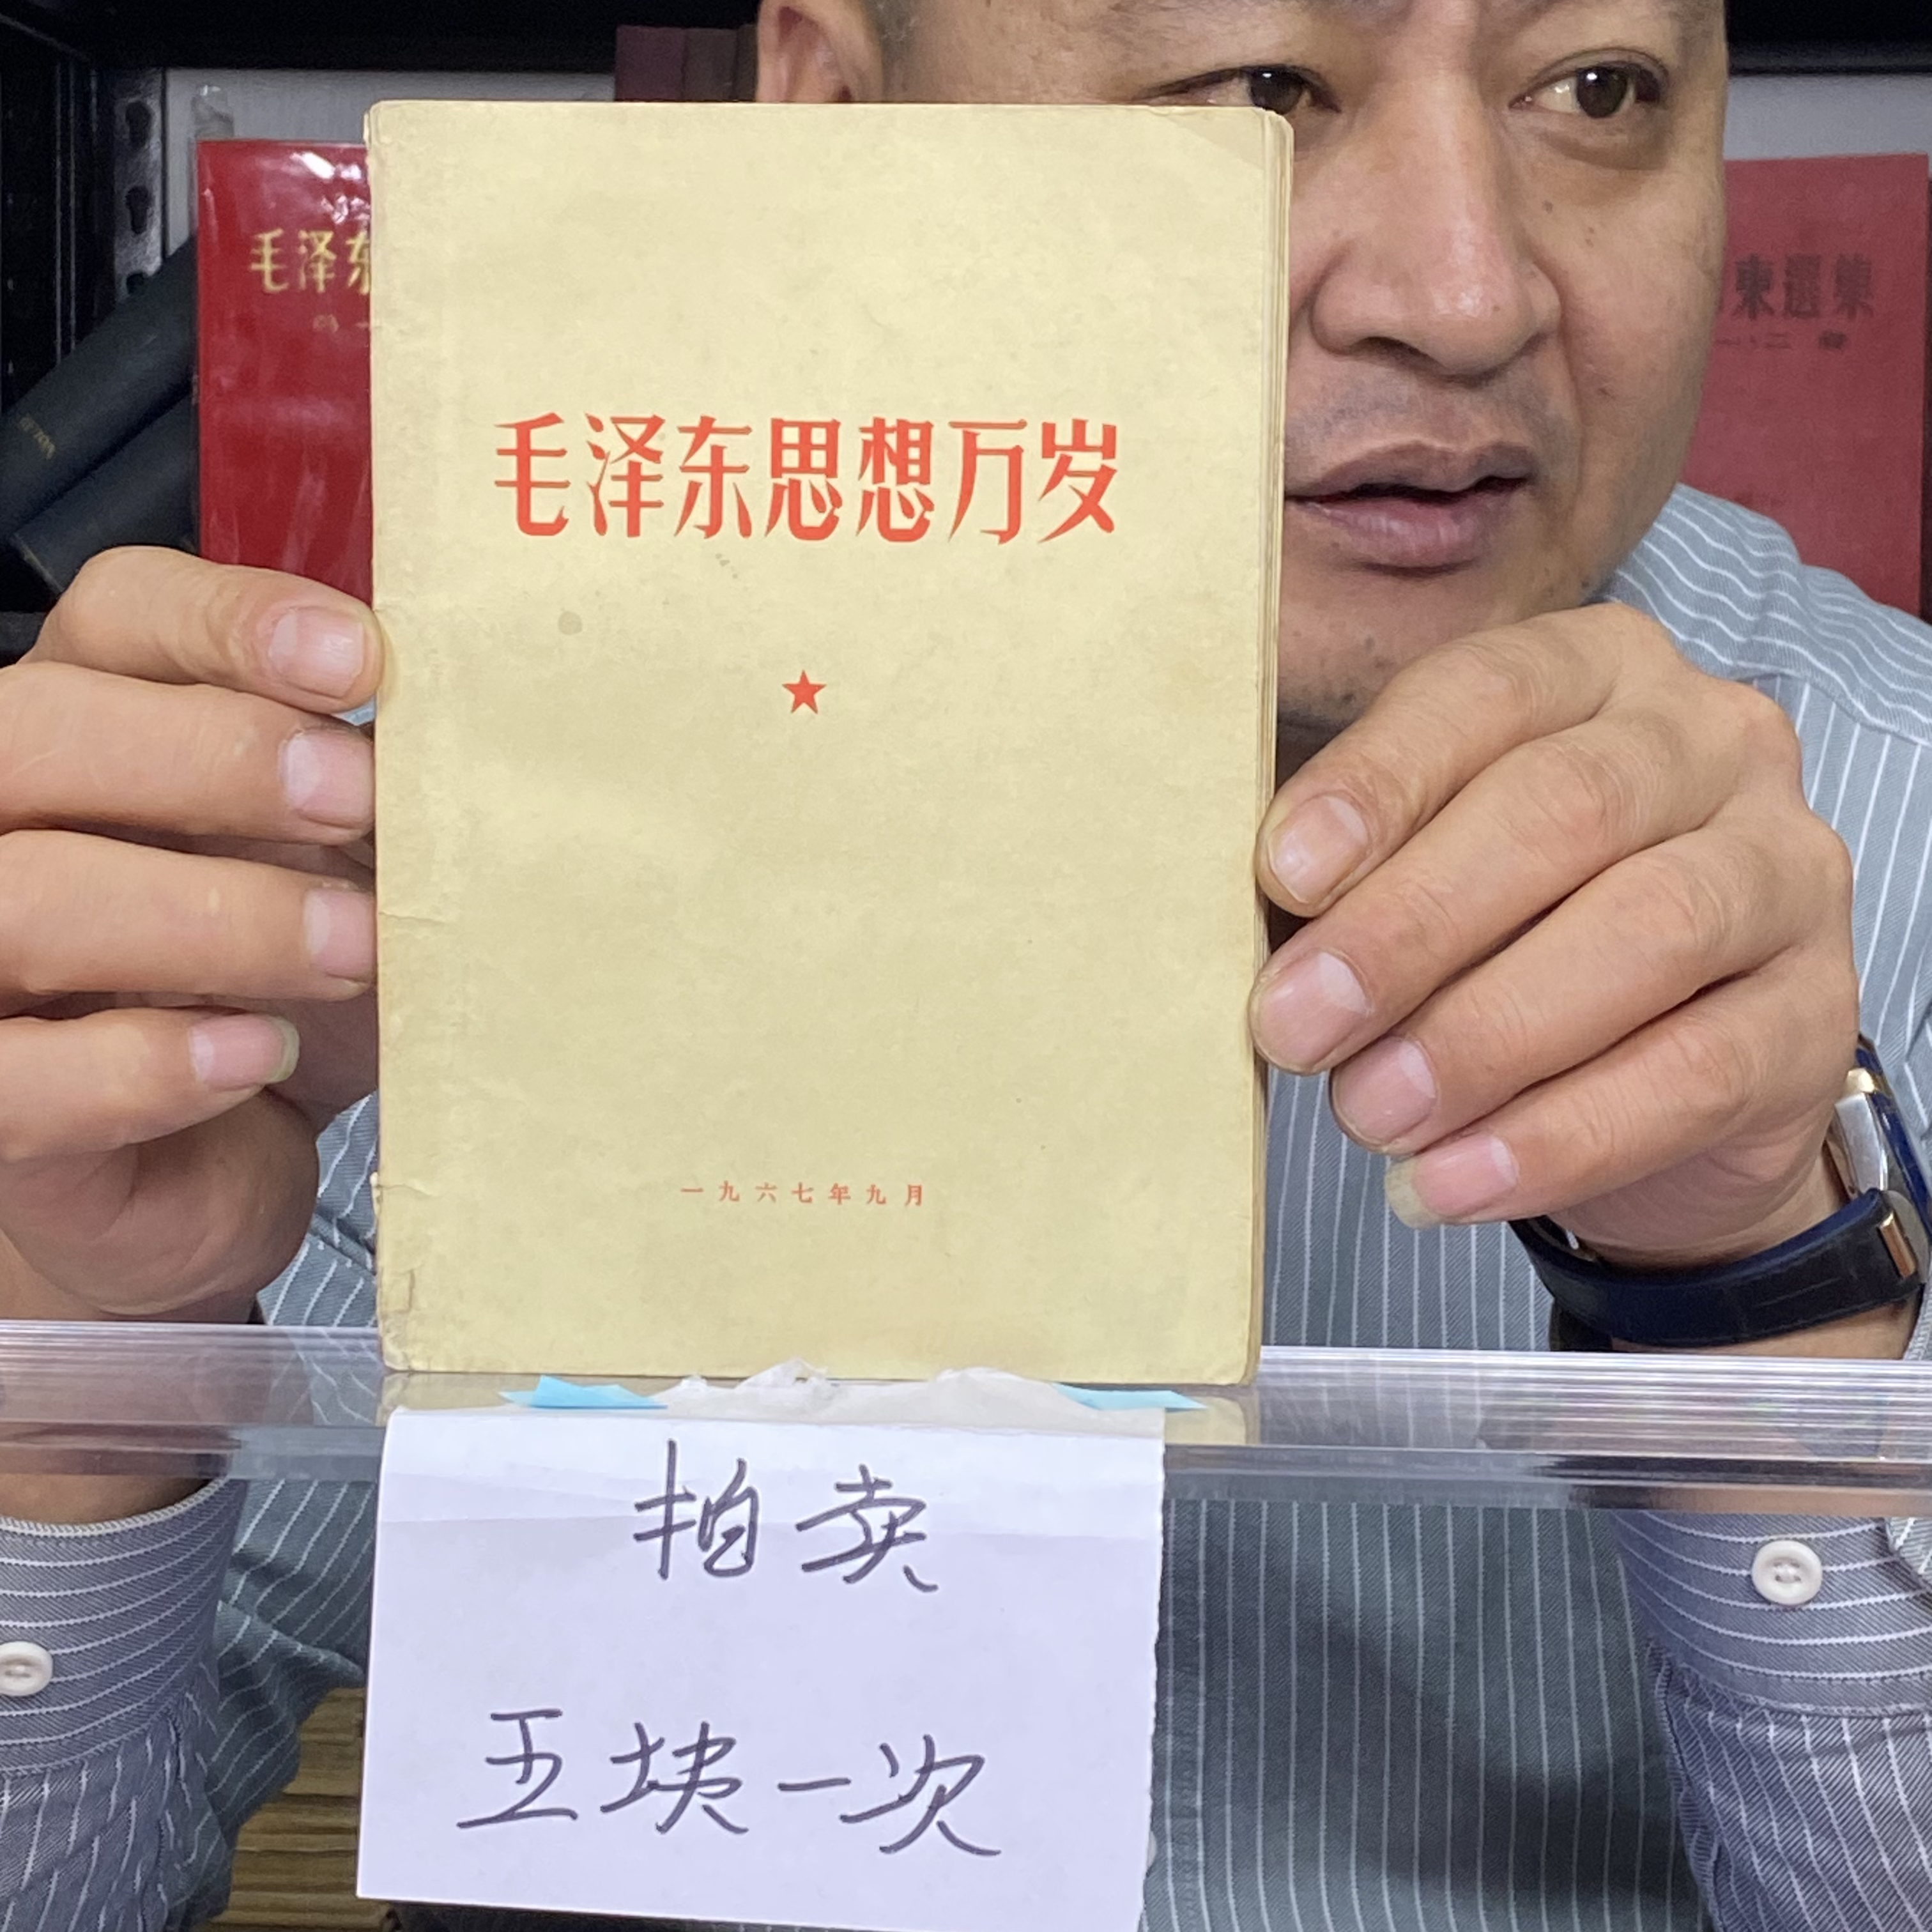 毛泽东
東選集
毛泽东思想万岁
一九六七年九月
拍卖
五块一次